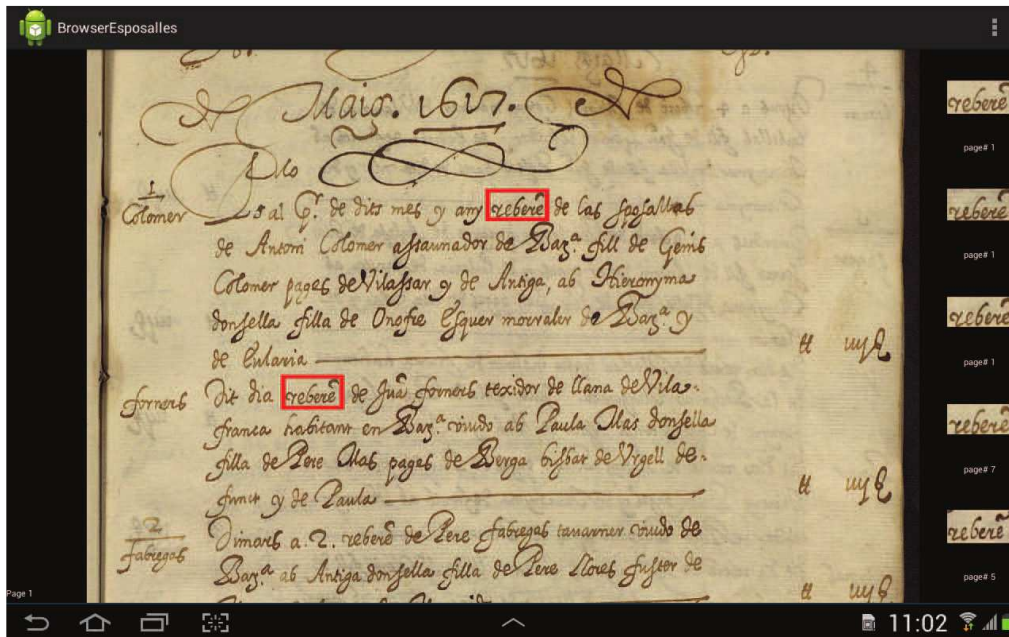 BrowserEsposalles
Maig. 1617.
1
Colomer
al Pr. de dits mes y any reberẽ de las sposallas
de Antoni Colomer assaunador de Barª fill de Genis
Colomer pages de Vilassar y de Antiga, ab Hieronyma
donsella filla de Onofre Esquer morraler de Barª y
de Eularia
tt
forners
Dit dia reberẽ de Juã forners texidor de llana de Vila-
franca habitant en Barª viudo ab Paula Mas donsella
filla de Pere Mas pages de Berga bisbat de Vrgell de-
funct y de Paula
tt
2
fabregas
Dimars a 2. reberẽ de Pere fabregas tauarner viudo de
Barª ab Antiga donsella filla de Pere Llores fuster de
tt
reberẽ
page# 1
reberẽ
page# 1
reberẽ
page# 1
reberẽ
page# 7
reberẽ
page# 5
Page 1
11:02